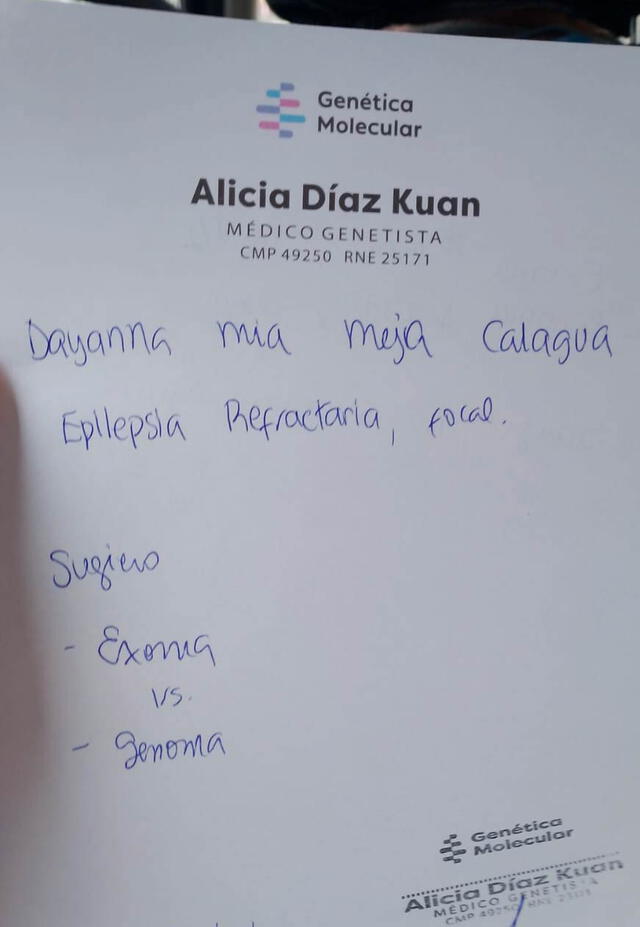 Genética
Molecular
Alicia Díaz Kuan
MÉDICO GENETISTA
CMP 49250 RNE 25171
Dayanna mia mejA Calagua
Epilepsia Refractaria, focal.
Sugiero
- Exoma
vs.
- genoma
Genética
Molecular
Alicia Díaz Kuan
MÉDICO GENETISTA
CMP 49250 RNE 25171